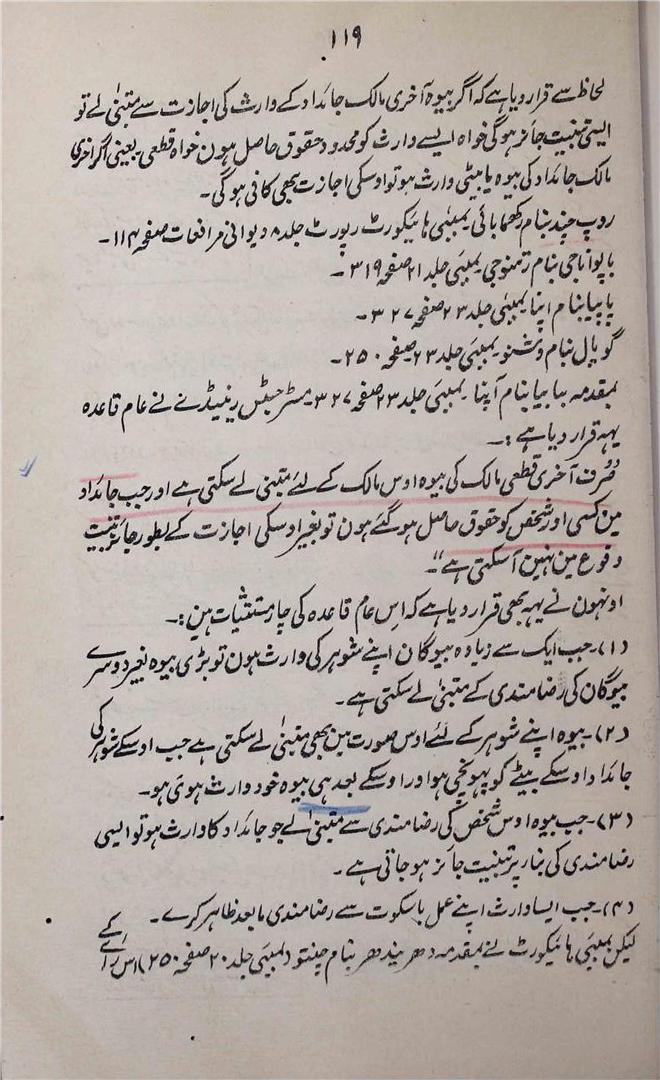 ۱۱۹
لحاظ سے قرار دیا ہے کہ اگر بیوہ آخری مالک جائداد کے وارث کی اجازت سے متبنیٰ لے تو
ایسی تبنیت جائز ہوگی خواہ ایسے وارث کو محدود حقوق حاصل ہون خواہ قطعی ۔ یعنی اگر آخری
مالک جائداد کی بیوہ یا بیٹی وارث ہو تو اوسکی اجازت بھی کافی ہوگی ۔
روپ چند بنام رکھما بائی ۔ بمبئی ہائیکورٹ رپورٹ جلد ۸ دیوانی مرافعات صفحہ ۱۱۴ ۔
باپو اناجی بنام رتنوجی ۔ بمبئی جلد ۲۱ صفحہ ۳۱۹ ۔
پاپیا بنام اپنا ۔ بمبئی جلد ۲۳ صفحہ ۳۲۷ ۔
گوپال بنام وشنو ۔ بمبئی جلد ۲۳ صفحہ ۲۵۰ ۔
بمقدمہ بابیا بنام آپنا ۔ بمبئی جلد ۲۳ صفحہ ۳۲۷ ۔ مسٹر جسٹس رینیڈے نے عام قاعدہ
یہہ قرار دیا ہے :۔
صرف آخری قطعی مالک کی بیوہ اوس مالک کے لئے متبنیٰ لے سکتی ہے اور جب جائداد
مین کسی اور شخص کو حقوق حاصل ہو گئے ہون تو بغیر اوسکی اجازت کے بطور جائز تبنیت
وقوع مین نہین آسکتی ہے“۔
اونہون نے یہہ بھی قرار دیا ہے کہ اس عام قاعدہ کی چار مستثنیات ہین :۔
(۱)۔ جب ایک سے زیادہ بیوگان اپنے شوہر کی وارث ہون تو بڑی بیوہ بغیر دوسرے
بیوگان کی رضامندی کے متبنیٰ لے سکتی ہے ۔
(۲)۔ بیوہ اپنے شوہر کے لئے اوس صورت مین بھی متبنیٰ لے سکتی ہے جب اوسکے شوہر کی
جائداد اوسکے بیٹے کو پہونچی ہو اور اوسکے بعد ہی بیوہ خود وارث ہوئی ہو ۔
(۳)۔ جب بیوہ اوس شخص کی رضامندی سے متبنیٰ لے جو جائداد کا وارث ہو تو ایسی
رضامندی کی بنا پر تبنیت جائز ہو جاتی ہے ۔
(۴)۔ جب ایسا وارث اپنے عمل یا سکوت سے رضامندی مابعد ظاہر کرے ۔
لیکن بمبئی ہائیکورٹ نے بمقدمہ دھرنیدھر بنام چنتو (بمبئی جلد ۲۰ صفحہ ۲۵۰) اس رائے کے